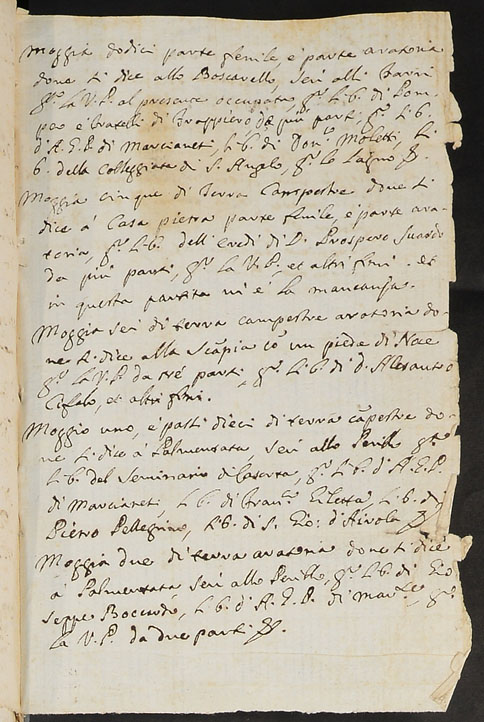 Moggia dodici parte fenile, e parte aratoria
dove si dice allo Boscarello, seu alli
la V.P. al presente occupata, li b. di Pom-
peo e fratelli di da più parti, li b.
d'A.G.P. di Marcianesi, li b. di Don Moletti, li
b. della Collegiata di S. Angelo, lo Lagno
Moggia cinque di terra campestre dove si
dice à Casa pietra parte fenile, e parte ara-
toria, li b. dell'eredi di D. Prospero Suardo
da più parti, la V.P. et altri fini. et
in questa partita vi è la mancanza.
Moggia sei di terra campestre aratoria do-
ve si dice alla Scàpia cō un piede di Nace
la V.P. da tré parti, li b. di d. Alesantro
Cefalo, et altri fini.
Moggio uno, e passi dieci di terra cāpestre do-
ve si dice à Palmentata, seu allo Perillo
li b. del Seminario di Caserta, li b. d'A.G.P.
di Marcianesi, li b. di Fran.co li b. di
Pietro Pellegrino, li b. di S. Gio: d'Airola
Moggia due di terra aratoria dove si dice
à Palmentata seu allo Perillo, li b. di Gio
seppe li b. d'A.G.P. di
la V.P. da due parti